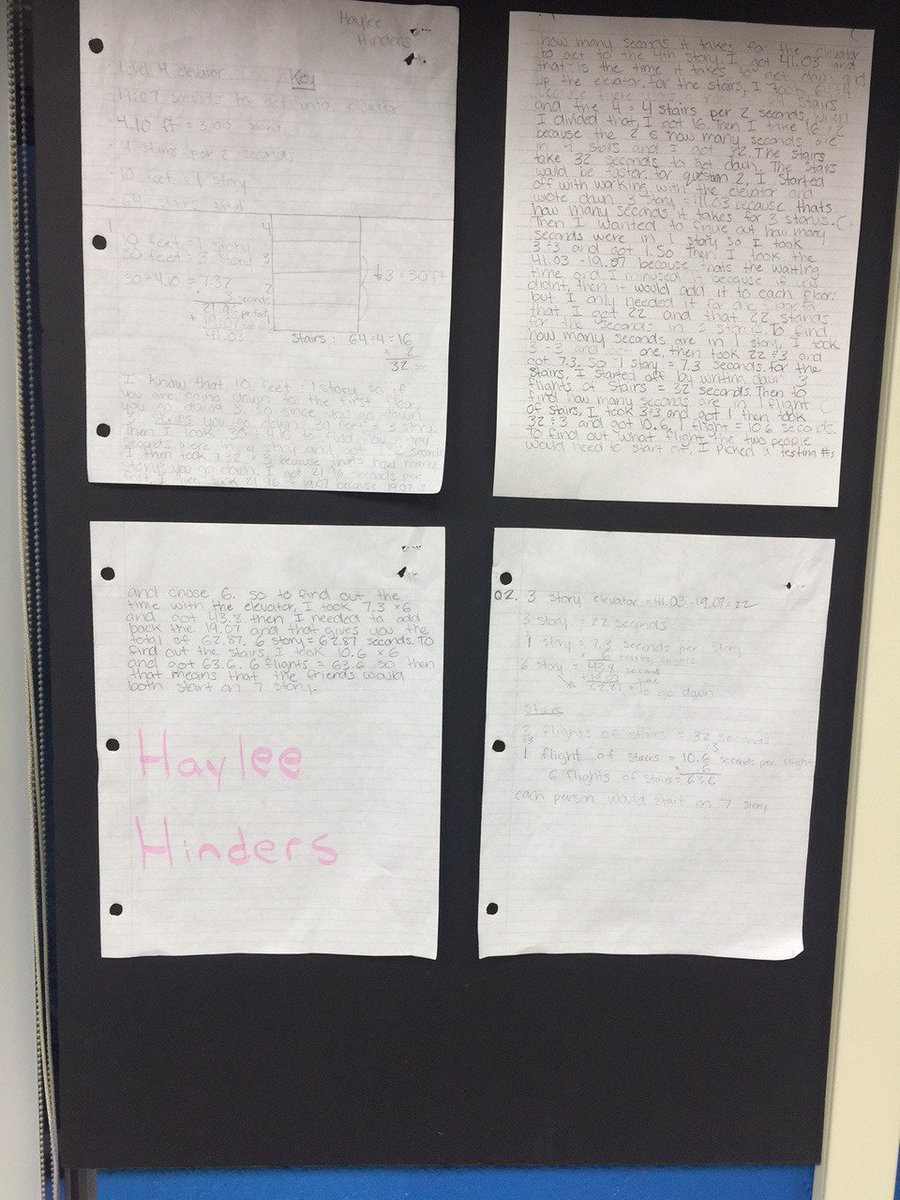 Haylee
Hinders
Key
Level 4 elevator
19.07 seconds to get into elevator
4.10 ft = 3.00 seconds
4 stairs per 2 seconds
10 feet = 1 story
64 stairs total
4
10 feet = 1 story
30 feet = 3 story
3
↓3 = 30ft
30 ÷ 4.10 = 7.32
2
3 seconds
41.03
Stairs: 64÷4=16
x 2
32 sec
I know that 10 feet = 1 story so if
you are going down to the first floor
Then I took 30 ÷ 4.10 to find how many
I then took 7.32 x 3 because that's how many
storys you go down. I got 21.96 seconds per
feet, I then took 21 to + 19.07 because 19.07 is
how many seconds it takes for the elevator
to get to the 4th story. I got 41.03 and
that is the time it takes to get
the elevator. for the stairs, I took 64÷4
and the 4 = 4 stairs per 2 seconds. When
I divided that, I got 16. Then I take 16 x 2
because the 2 is how many seconds are
in 4 stairs and I got 32. The stairs
take 32 seconds to get down. The stairs
would be faster. for question 2, I started
off with working with the elevator and
wrote down 3 story = 41.03 because thats
how many seconds it takes for 3 storys.
Then I wanted to figure out how many
seconds were in 1 story so I took
3÷3 and got 1. So then I took the
41.03 - 19.07 because thats the waiting
time and I minused it because if you
didnt, then it would add it to each floor.
but I only needed it for
that I got 22 and that 22 stands
for the seconds in 3 storys. To find
how many seconds are in 1 story, I took
3÷3 and got one. then took 22÷3 and
got 7.3. So 1 story = 7.3 seconds. for the
stairs, I started off by writing down 3
flights of stairs = 32 seconds. Then to
find how many seconds are in 1 flight
of stairs, I took 3÷3 and got 1 then took
32÷3 and got 10.6. 1 flight = 10.6 seconds.
To find out what flight the two people
would need to start off, I picked a testing #s
and chose 6. so to find out the
time with the elevator, I took 7.3 x6
and got 43.8 then I needed to add
back the 19.07 and that gives you the
total of 62.87 6 story = 62.87 seconds. TO
find out the stairs, I took 10.6 x6
and got 63.6. 6 flights = 63.6 so then
that means that the friends would
both start on 7 story.
Haylee
Hinders
Q2. 3 story elevator = 41.03 - 19.07 = 22
3 story = 22 seconds
1 story = 7.3 seconds per story
6 story = 43.8 seconds
+ 19.07 time
62.87 to go down
Stairs
3 flights of stairs = 32 seconds
÷3 ÷3
1 flight of stairs = 10.6 seconds per flight
x 6
6 flights of stairs = 63.6
each person would start on 7 story